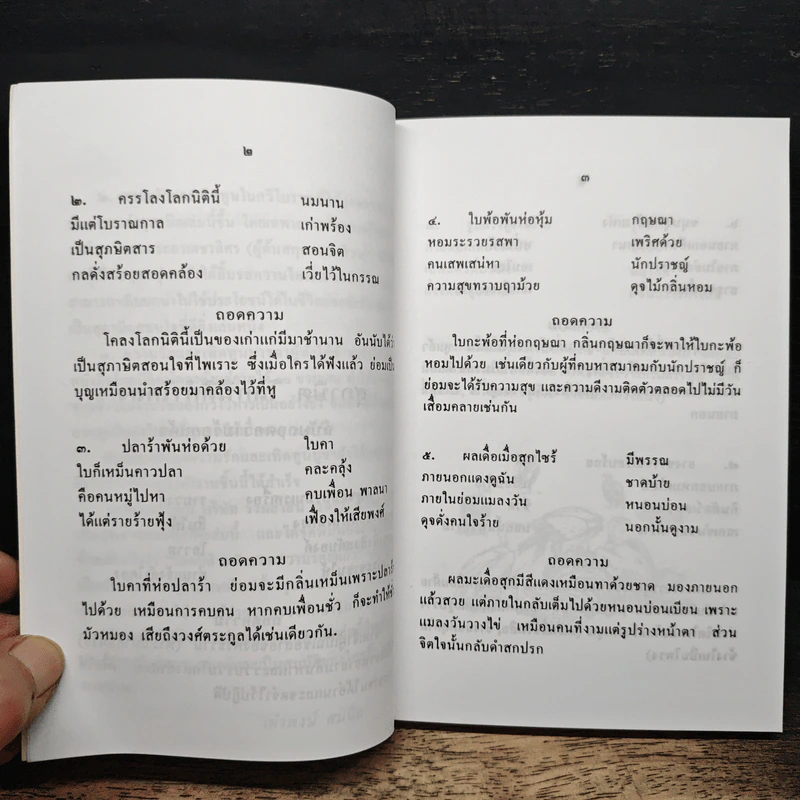 ๒
๒. ครรโลงโลกนิตินี้ นมนาน
มีแต่โบราณกาล เก่าพร้อง
เป็นสุภษิตสาร สอนจิต
กลดั่งสร้อยสอดคล้อง เวี่ยไว้ในกรรณ
ถอดความ
โคลงโลกนิตินี้เป็นของเก่าแก่มีมาช้านาน อันนับได้ว่า
เป็นสุภาษิตสอนใจที่ไพเราะ ซึ่งเมื่อใครได้ฟังแล้ว ย่อมเป็น
บุญเหมือนนำสร้อยมาคล้องไว้ที่หู
๓. ปลาร้าพันห่อด้วย ใบคา
ใบก็เหม็นคาวปลา คละคลุ้ง
คือคนหมู่ไปหา คบเพื่อน พาลนา
ได้แต่รายร้ายฟุ้ง เฟื่องให้เสียพงศ์
ถอดความ
ใบคาที่ห่อปลาร้า ย่อมจะมีกลิ่นเหม็นเพราะปลาร้า
ไปด้วย เหมือนการคบคน หากคบเพื่อนชั่ว ก็จะทำให้
มัวหมอง เสียถึงวงศ์ตระกูลได้เช่นเดียวกัน.
๓
๔. ใบพ้อพันห่อหุ้ม กฤษณา
หอมระรวยรสพา เพริศด้วย
คนเสพเสน่หา นักปราชญ์
ความสุขทราบฤาม้วย ดุจไม้กลิ่นหอม
ถอดความ
ใบกะพ้อที่ห่อกฤษณา กลิ่นกฤษณาก็จะพาให้ใบกะพ้อ
หอมไปด้วย เช่นเดียวกับผู้ที่คบหาสมาคมกับนักปราชญ์ ก็
ย่อมจะได้รับความสุข และความดีงามติดตัวตลอดไปไม่มีวัน
เสื่อมคลายเช่นกัน
๕. ผลเดื่อเมื่อสุกไซร้ มีพรรณ
ภายนอกแดงดูฉัน ชาดบ้าย
ภายในย่อมแมลงวัน หนอนบ่อน
ดุจดั่งคนใจร้าย นอกนั้นดูงาม
ถอดความ
ผลมะเดื่อสุกมีสีแดงเหมือนทาด้วยชาด มองภายนอก
แล้วสวย แต่ภายในกลับเต็มไปด้วยหนอนบ่อนเบียน เพราะ
แมลงวันวางไข่ เหมือนคนที่งามแต่รูปร่างหน้าตา ส่วน
จิตใจนั้นกลับดำสกปรก